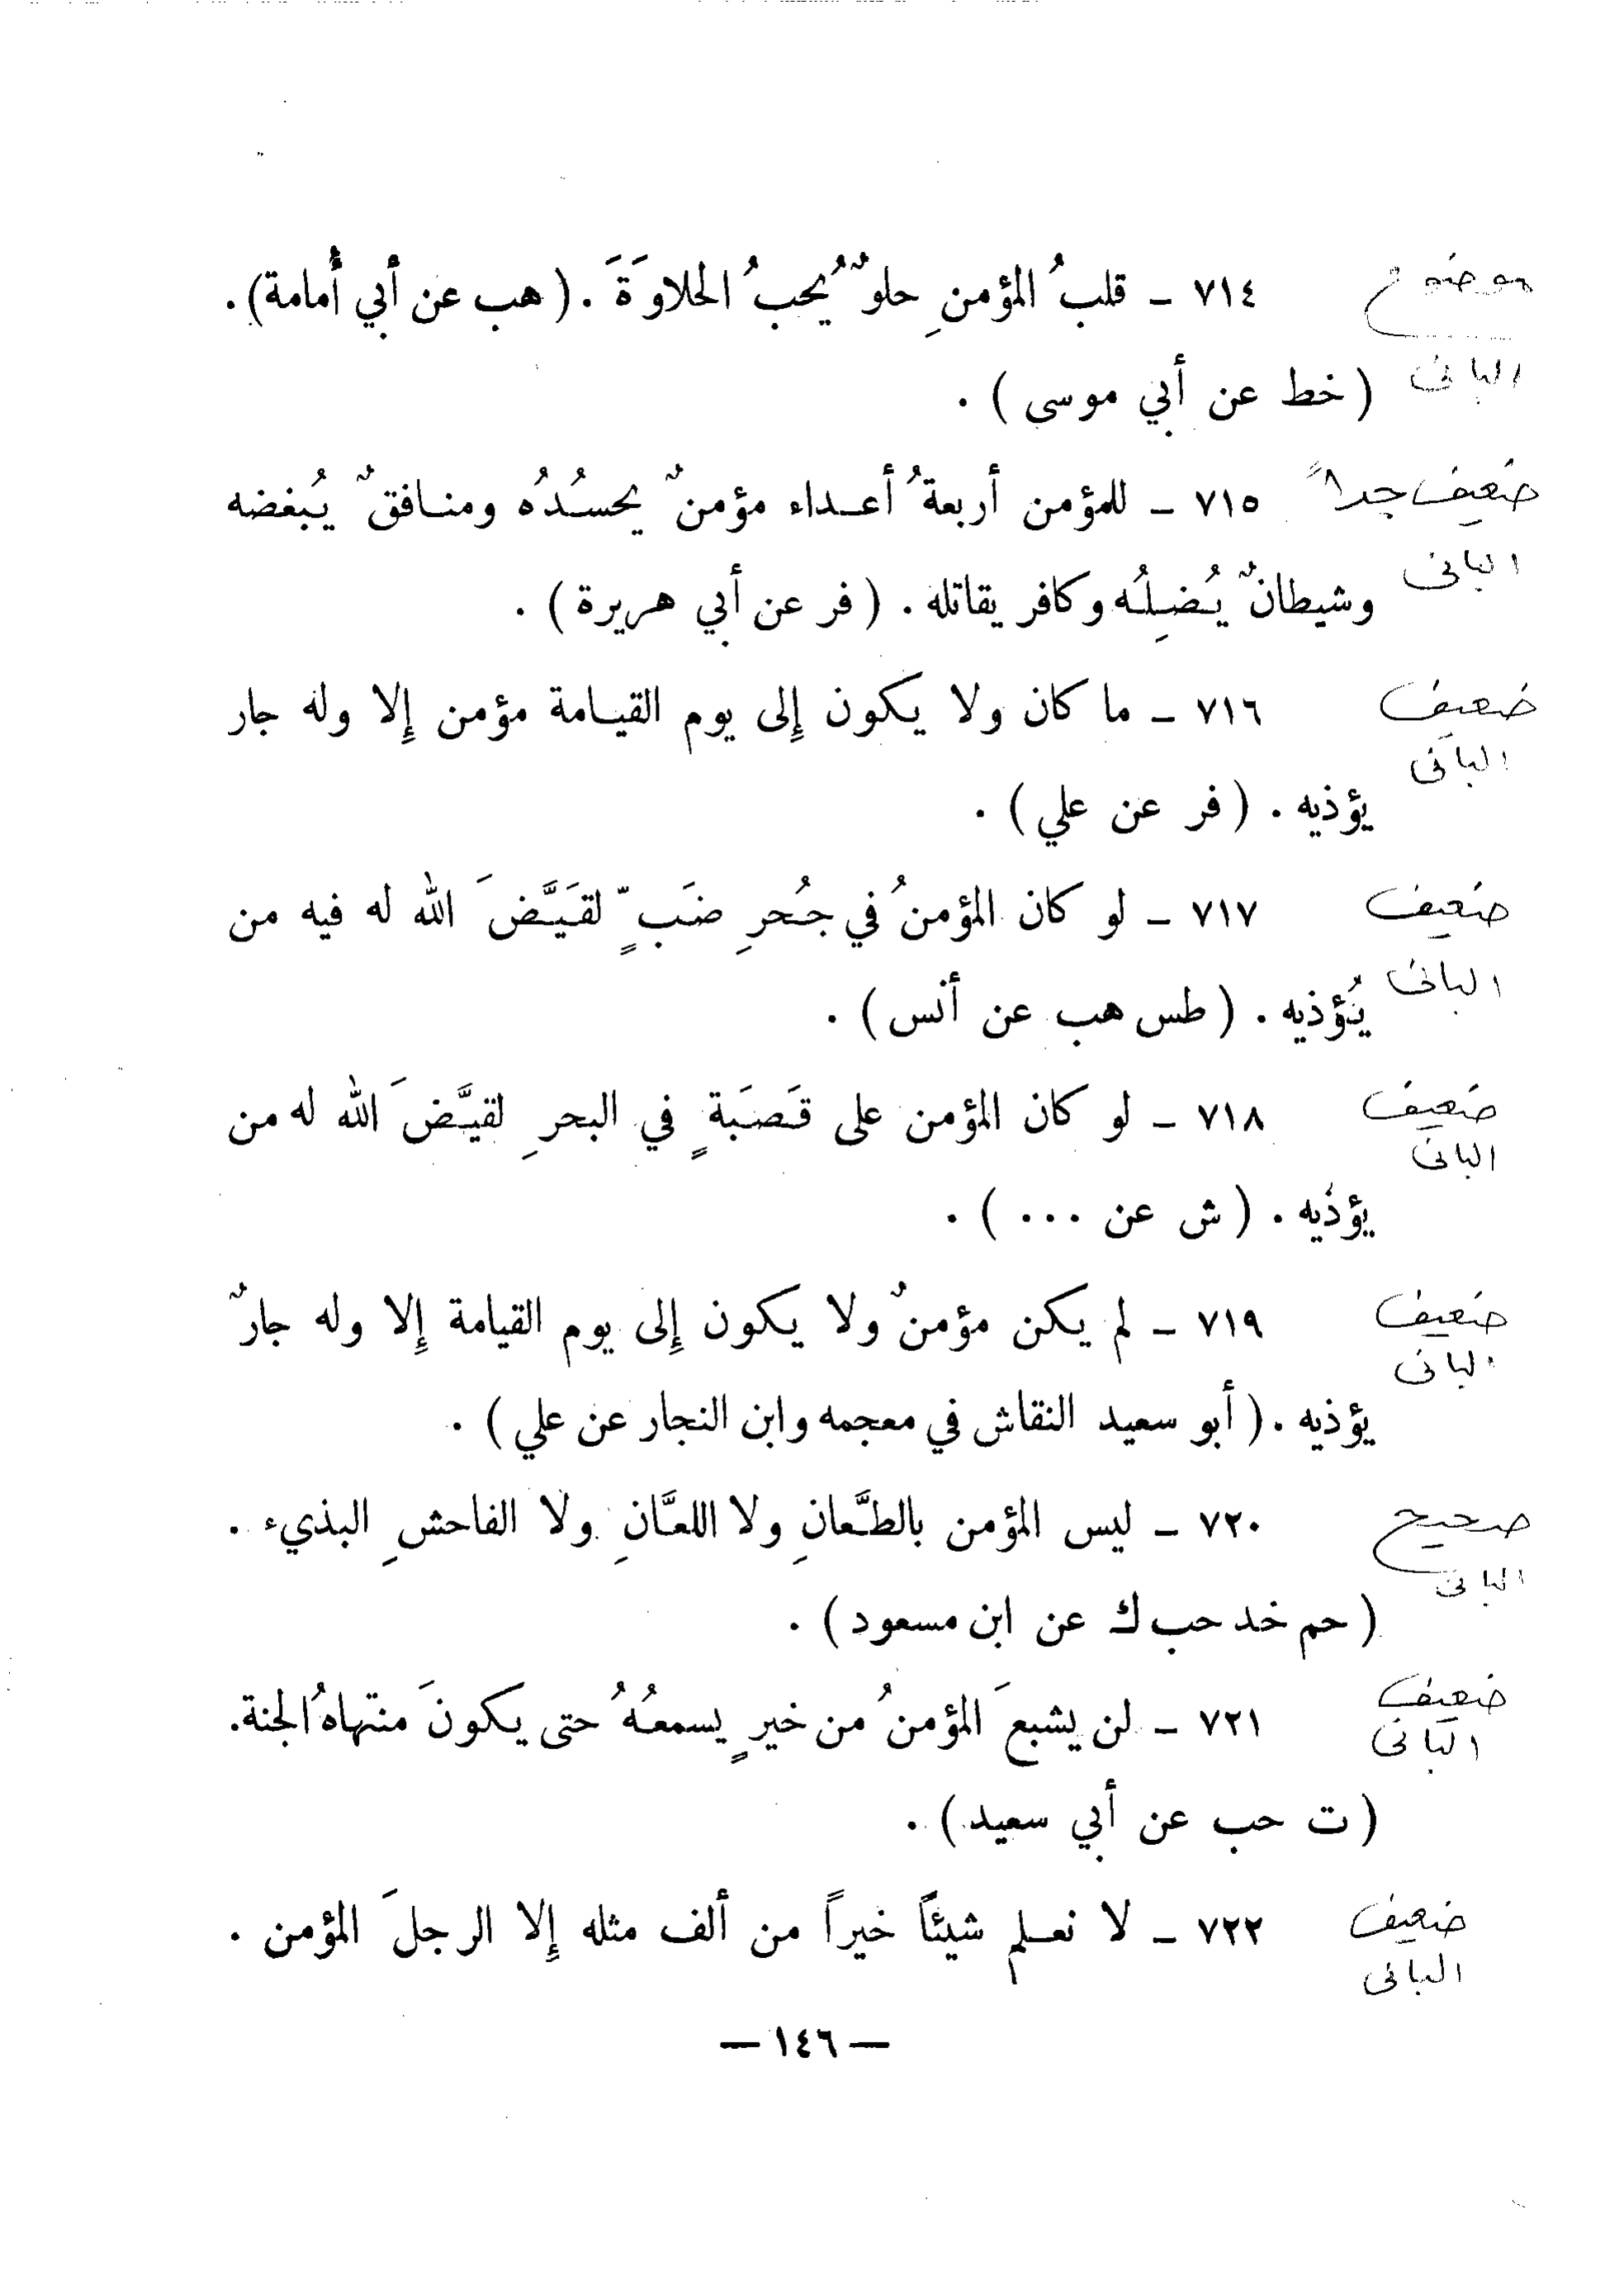 موضوع
٧١٤ – قلبُ المؤمنِ حلوٌ يُحبُ الحلاوَةَ . ( هب عن أبي أُمامة ) .
البانى
( خط عن أبي موسى ) .
ضعيف جداً
٧١٥ – للمؤمن أربعةُ أعـداء مؤمنٌ يحسـُدُه ومنـافقٌ يُبغضه
البانى
وشيطانٌ يُضـِلـُه وكافر يقاتله . ( فر عن أبي هريرة ) .
ضعيف
٧١٦ – ما كان ولا يكون إلى يوم القيـامة مؤمن إلا وله جار
البانى
يؤذيه . ( فر عن علي ) .
ضعيف
٧١٧ – لو كان المؤمنُ في جُحرِ ضَبٍّ لقَيَّضَ الله له فيه من
البانى
يُؤذيه . ( طس هب عن أنس ) .
ضعيف
٧١٨ – لو كان المؤمن على قَصَبَةٍ في البحرِ لقيَّضَ الله له من
البانى
يؤذيه . ( ش عن ... ) .
ضعيف
٧١٩ – لم يكن مؤمنٌ ولا يكون إلى يوم القيامة إلا وله جارٌ
البانى
يؤذيه . ( أبو سعيد النقاش في معجمه وابن النجار عن علي ) .
صحيح
٧٢٠ – ليس المؤمن بالطَّعانِ ولا اللعَّانِ ولا الفاحشِ البذيء .
البانى
( حم خد حب ك عن ابن مسعود ) .
ضعيف
٧٢١ – لن يشبعَ المؤمنُ من خيرٍ يسمعُهُ حتى يكونَ منتهاهُ الجنة .
البانى
( ت حب عن أبي سعيد ) .
ضعيف
٧٢٢ – لا نعـلم شيئاً خيراً من ألف مثله إلا الرجلَ المؤمن .
البانى
— ١٤٦ —